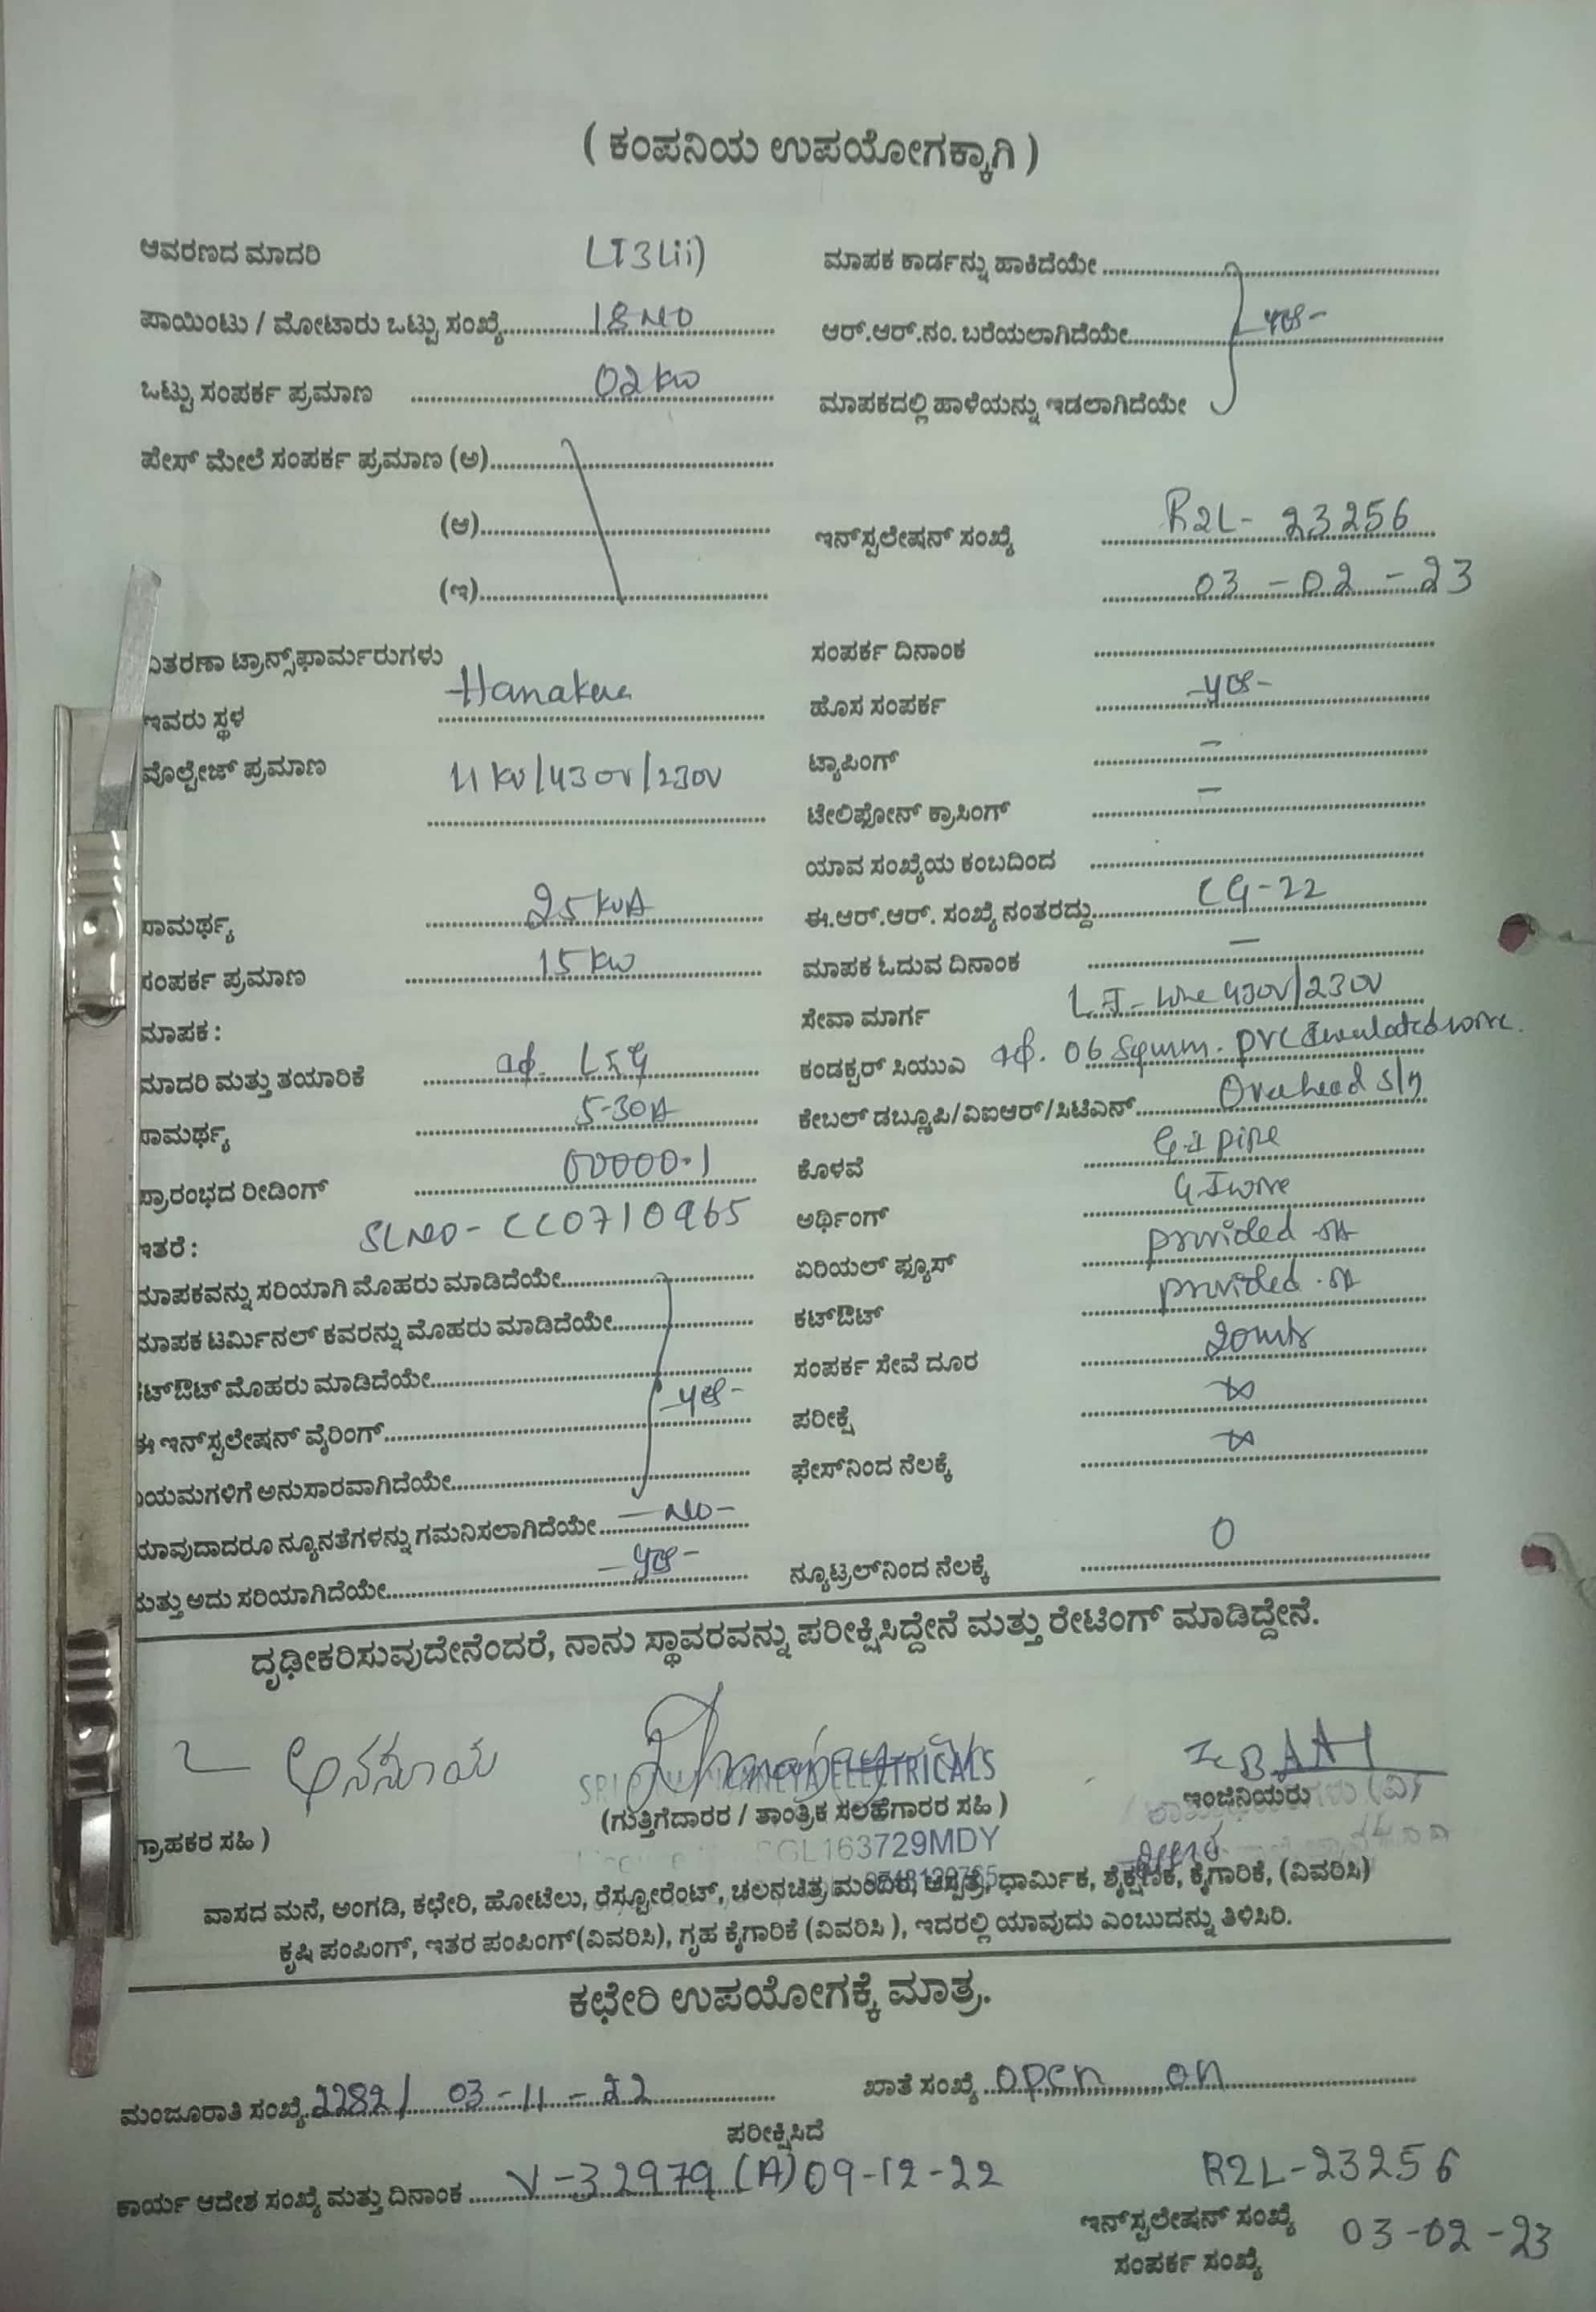 ( ಕಂಪನಿಯ ಉಪಯೋಗಕ್ಕಾಗಿ )
ಆವರಣದ ಮಾದರಿ LT3(ii)
ಪಾಯಿಂಟು / ಮೋಟಾರು ಒಟ್ಟು ಸಂಖ್ಯೆ 18 NO
ಒಟ್ಟು ಸಂಪರ್ಕ ಪ್ರಮಾಣ 02 KW
ಪೇಸ್ ಮೇಲೆ ಸಂಪರ್ಕ ಪ್ರಮಾಣ (ಅ)
(ಆ)
(ಇ)
ಮಾಪಕ ಕಾರ್ಡನ್ನು ಹಾಕಿದೆಯೇ
ಆರ್.ಆರ್.ನಂ. ಬರೆಯಲಾಗಿದೆಯೇ yes-
ಮಾಪಕದಲ್ಲಿ ಹಾಳೆಯನ್ನು ಇಡಲಾಗಿದೆಯೇ
ಇನ್‌ಸ್ಟಲೇಷನ್ ಸಂಖ್ಯೆ R2L- 23256
03-02-23
ವಿತರಣಾ ಟ್ರಾನ್ಸ್‌ಫಾರ್ಮರುಗಳು
ಇವರು ಸ್ಥಳ Hanakere
ವೊಲ್ಟೇಜ್ ಪ್ರಮಾಣ 11 KV/430V/230V
ಸಾಮರ್ಥ್ಯ 25 KVA
ಸಂಪರ್ಕ ಪ್ರಮಾಣ 15 KW
ಮಾಪಕ :
ಮಾದರಿ ಮತ್ತು ತಯಾರಿಕೆ L&G
ಸಾಮರ್ಥ್ಯ 5-30A
ಪ್ರಾರಂಭದ ರೀಡಿಂಗ್ 00000.1
ಇತರೆ : SLNO- CC0710965
ಮಾಪಕವನ್ನು ಸರಿಯಾಗಿ ಮೊಹರು ಮಾಡಿದೆಯೇ
ಮಾಪಕ ಟರ್ಮಿನಲ್ ಕವರನ್ನು ಮೊಹರು ಮಾಡಿದೆಯೇ
ಕಟ್‌ಔಟ್ ಮೊಹರು ಮಾಡಿದೆಯೇ yes-
ಈ ಇನ್‌ಸ್ಟಲೇಷನ್ ವೈರಿಂಗ್
ನಿಯಮಗಳಿಗೆ ಅನುಸಾರವಾಗಿದೆಯೇ
ಯಾವುದಾದರೂ ನ್ಯೂನತೆಗಳನ್ನು ಗಮನಿಸಲಾಗಿದೆಯೇ -No-
ಮತ್ತು ಅದು ಸರಿಯಾಗಿದೆಯೇ -yes-
ಸಂಪರ್ಕ ದಿನಾಂಕ
ಹೊಸ ಸಂಪರ್ಕ -yes-
ಟ್ಯಾಪಿಂಗ್ -
ಟೇಲಿಫೋನ್ ಕ್ರಾಸಿಂಗ್ -
ಯಾವ ಸಂಖ್ಯೆಯ ಕಂಬದಿಂದ
ಈ.ಆರ್.ಆರ್. ಸಂಖ್ಯೆ ನಂತರದ್ದು CG-22
ಮಾಪಕ ಓದುವ ದಿನಾಂಕ -
ಸೇವಾ ಮಾರ್ಗ L.T- line 430V/230V
ಕಂಡಕ್ಟರ್ ಸಿಯುಎ 06 Sqmm. PVC Insulated wire.
ಕೇಬಲ್ ಡಬ್ಲ್ಯೂಪಿ/ವಿಐಆರ್/ಸಿಟಿಎಸ್ Overhead S/M
ಕೊಳವೆ G.I pipe
ಅರ್ಥಿಂಗ್ G.I wire
ಏರಿಯಲ್ ಫ್ಯೂಸ್ provided
ಕಟ್‌ಔಟ್ provided
ಸಂಪರ್ಕ ಸೇವೆ ದೂರ 20mts
ಪರೀಕ್ಷೆ ∞
ಫೇಸ್‌ನಿಂದ ನೆಲಕ್ಕೆ ∞
ನ್ಯೂಟ್ರಲ್‌ನಿಂದ ನೆಲಕ್ಕೆ 0
ದೃಢೀಕರಿಸುವುದೇನೆಂದರೆ, ನಾನು ಸ್ಥಾವರವನ್ನು ಪರೀಕ್ಷಿಸಿದ್ದೇನೆ ಮತ್ತು ರೇಟಿಂಗ್ ಮಾಡಿದ್ದೇನೆ.
ಅನಸೂಯ
ELECTRICALS
ಗ್ರಾಹಕರ ಸಹಿ )
(ಗುತ್ತಿಗೆದಾರರ / ತಾಂತ್ರಿಕ ಸಲಹೆಗಾರರ ಸಹಿ )
ಇಂಜಿನಿಯರು
GL163729MDY
ವಾಸದ ಮನೆ, ಅಂಗಡಿ, ಕಛೇರಿ, ಹೋಟೆಲು, ರೆಸ್ಟೋರೆಂಟ್, ಚಲನಚಿತ್ರ ಮಂದಿರ, ಆಸ್ಪತ್ರೆ, ಧಾರ್ಮಿಕ, ಶೈಕ್ಷಣಿಕ, ಕೈಗಾರಿಕೆ, (ವಿವರಿಸಿ)
ಕೃಷಿ ಪಂಪಿಂಗ್, ಇತರ ಪಂಪಿಂಗ್(ವಿವರಿಸಿ), ಗೃಹ ಕೈಗಾರಿಕೆ (ವಿವರಿಸಿ ), ಇದರಲ್ಲಿ ಯಾವುದು ಎಂಬುದನ್ನು ತಿಳಿಸಿರಿ.
ಕಛೇರಿ ಉಪಯೋಗಕ್ಕೆ ಮಾತ್ರ.
ಮಂಜೂರಾತಿ ಸಂಖ್ಯೆ 2282/ 03-11-22 ಖಾತೆ ಸಂಖ್ಯೆ open on
ಪರೀಕ್ಷಿಸಿದೆ
ಕಾರ್ಯ ಆದೇಶ ಸಂಖ್ಯೆ ಮತ್ತು ದಿನಾಂಕ V-32979 (A) 09-12-22
R2L-23256
ಇನ್‌ಸ್ಟಲೇಷನ್ ಸಂಖ್ಯೆ
03-02-23
ಸಂಪರ್ಕ ಸಂಖ್ಯೆ